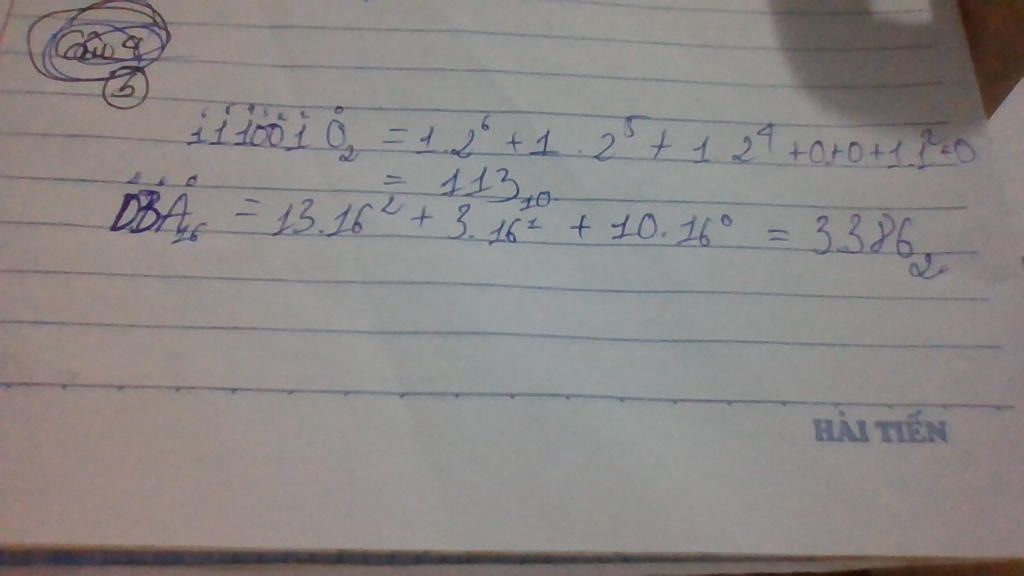 Câu 4
3
1110010₂ = 1.2⁶ + 1.2⁵ + 1.2⁴ +0+0+1.1²+0
= 113₁₀
D3A₁₆ = 13.16² + 3.16¹ + 10.16⁰ = 3386₂
HẢI TIẾN